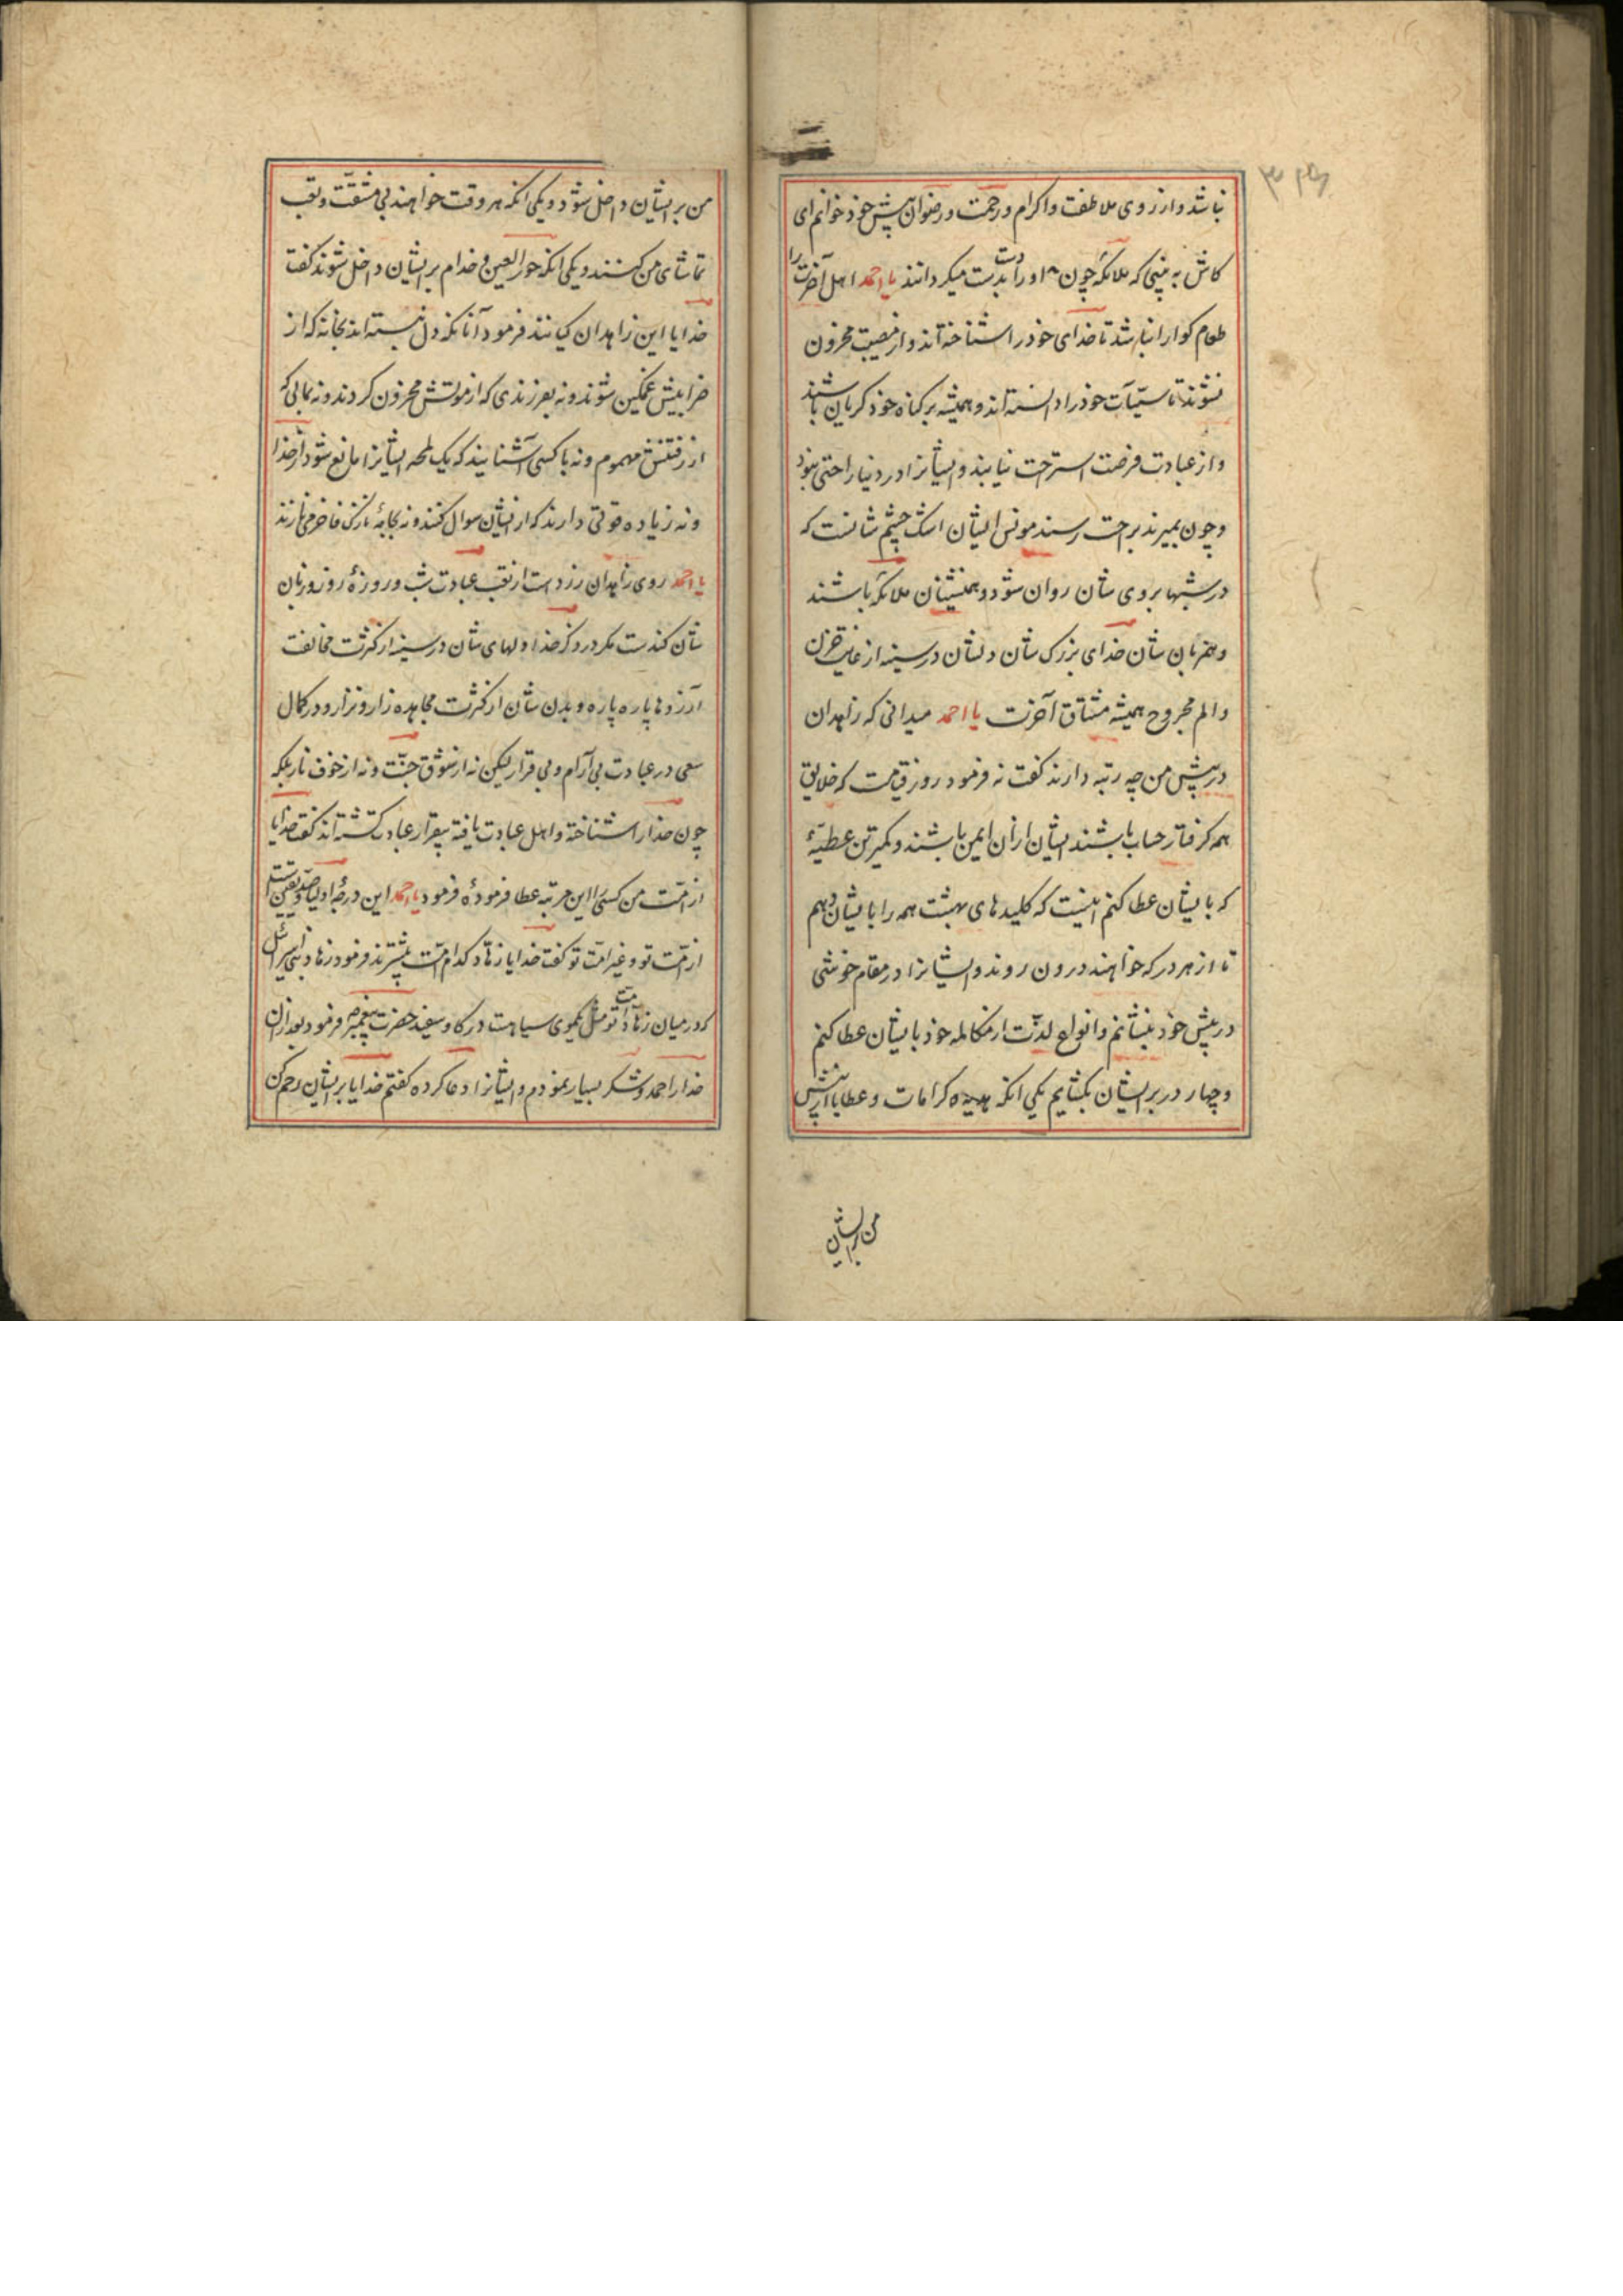 نباشد و از روی ملاطفت و اکرام و رحمت و رضوان پیش خود خوانم ای
کاش به بینی که ملائکه چون او را دست بدست میکردانند یا احمد اهل آخرت را
طعام کوارا نباشد تا خدای خود را شناخته اند و از مصیبت محزون
نشوند تا سیّآت خود را دانسته اند و همیشه بر کناه خود کریان باشند
و از عبادت فرصت استرحت نیابند و ایشانرا در دنیا راحتی نبود
و چون بمیرند براحت رسند مونس ایشان اشک چشم شانست که
در شبها بروی شان روان شود و همنشینان ملائکه باشند
و همزبان شان خدای بزرک شان دلشان در سینه از غایت حزن
و الم مجروح همیشه مشتاق آخرت یا احمد میدانی که زاهدان
در پیش من چه رتبه دارند کفت نه فرمود روز قیامت که خلایق
همه کرفتار حساب باشند ایشان از آن ایمن باشند و کمترین عطیّهٔ
که بایشان عطا کنم اینست که کلیدهای بهشت همه را بایشان دهم
تا از هر در که خواهند درون روند و ایشانرا در مقام خوشی
در پیش خود بنشانم و انواع لذّت از مکالمه خود بایشان عطا کنم
و چهار در بر ایشان بکشایم یکی انکه هدیه کرامات و عطایا از پیش
من بر ایشان
من بر ایشان داخل شود و یکی انکه هر وقت خواهند بی مشقّت و تعب
تماشای من کنند و یکی انکه حور العین و خدام بر ایشان داخل شوند کفت
خدایا این زاهدان کیانند فرمود آنانکه دل نبسته اند بخانه که از
خرابیش غمکین شوند و نه بفرزندی که از موتش محزون کردند و نه بمالی که
از رفتنش مهموم و نه با کسی آشنایند که یک لمحه ایشانرا مانع شود از خدا
و نه زیاده قوتی دارند که از ایشان سوال کنند و نه بجامهٔ نازک فاخر می نازند
یا احمد روی زاهدان زردست از تعب عبادت شب و روزهٔ روز و زبان
شان کندست مکر در ذکر خدا و لهای شان در سینه از کثرت مخالفت
آرزوها پاره پاره و بدن شان از کثرت مجاهده زار و نزار و در کمال
سعی در عبادت بی آرام و بی قرار لیکن نه از شوق جنّت و نه از خوف نار بلکه
چون خدا را شناخته و اهل عبادت یافته بیقرار عبادت کشته اند کفت خدایا
از امّت من کسی را این مرتبه عطا فرمودهٔ فرمود یا احمد این درجهٔ اولیا و صدّیقین است
از امّت تو و غیر امّت تو کفت خدایا زهّاد کدام امّت بیشترند فرمود زهاد بنی اسرائیل
که در میان زهّاد امت تو مثل یکموی سیاهست در کاو سفید حضرت پیغمبر فرمود بعد از آن
خدا را حمد و شکر بسیار نمودم و ایشانرا دعا کرده کفتم خدایا بر ایشان رحم کن